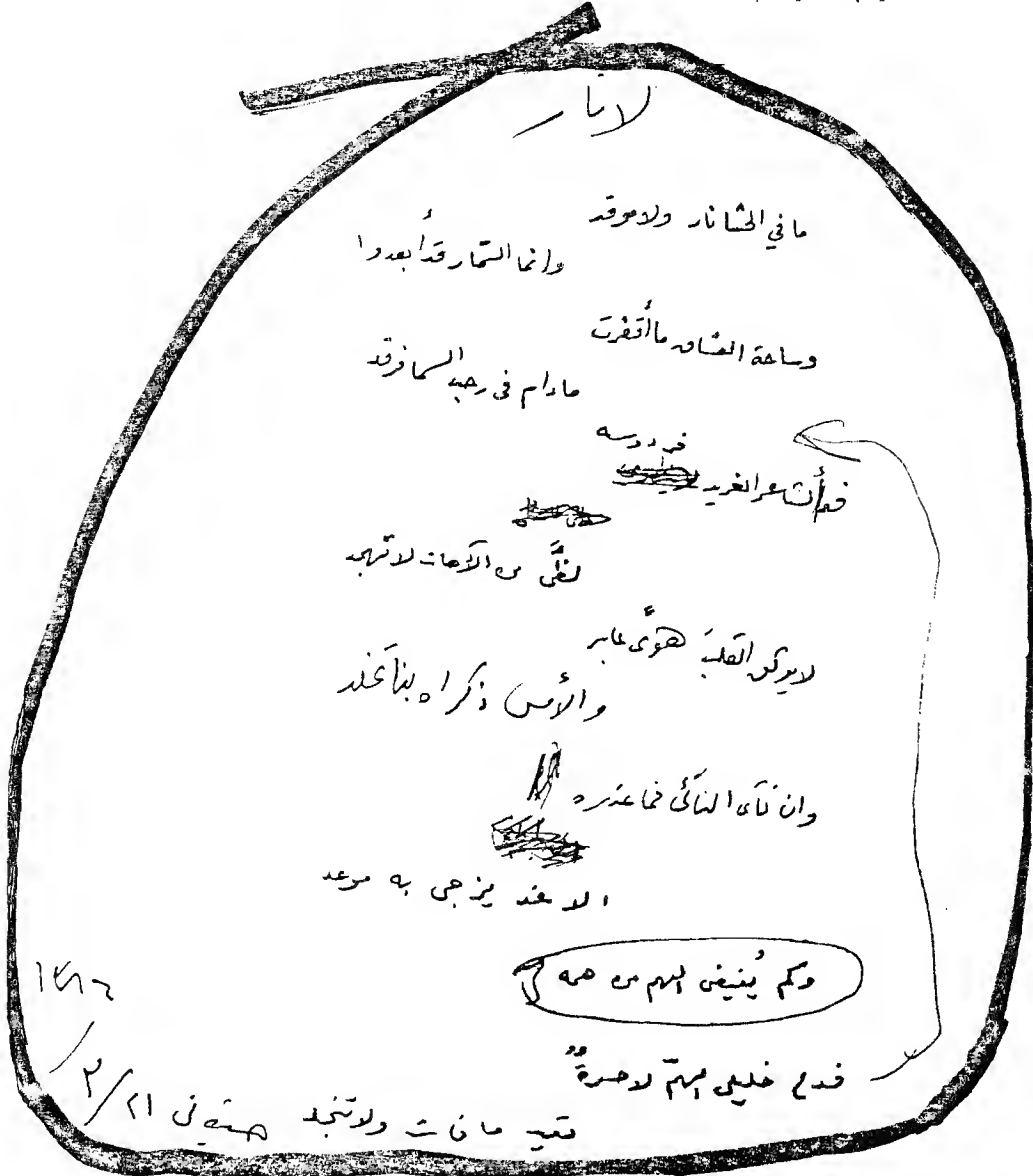 لا نار
ما في الحشا نار ولا موقد
وانما السمّار قد أبعدوا
وساحة العشاق ما أقفرت
مادام في رحب السما فرقد
الشاعر الغريد فردوسه
لظىً من الآهات لا تهمد
القلبَ هوىً عابر
والأمس ذكراه بنا تخلد
وان نأى النائى فما عذره
الا غد يزجى به موعد
وكم يُفيض الهم من همه
فدع خليلى الهمّ لا حسرةٌ
تعيد ما فات ولا تنجد
في ٢١/٣/